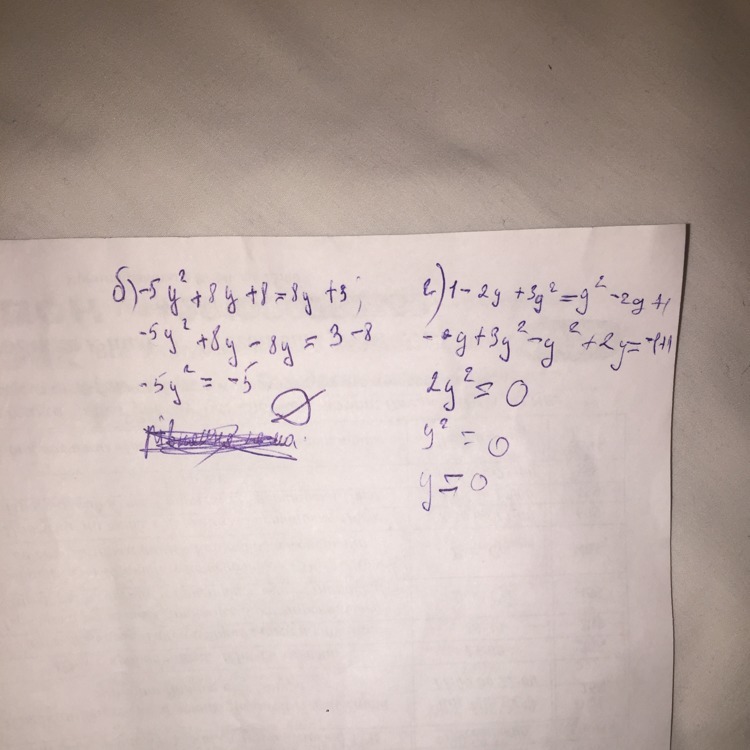 б) -5y² + 8y + 8 = 8y + 3;
-5y² + 8y - 8y = 3 - 8
-5y² = -5
∅
г) 1 - 2y + 3y² = y² - 2y + 1
y + 3y² - y² + 2y = -1+1
2y² = 0
y² = 0
y = 0